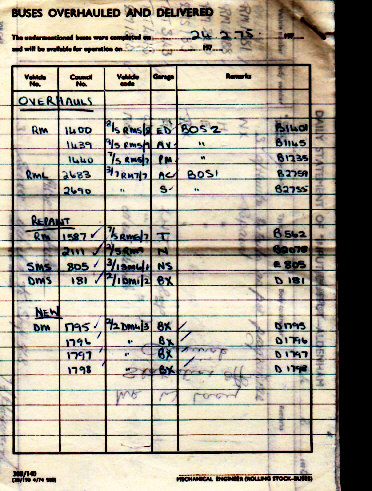 BUSES OVERHAULED AND DELIVERED
The undermentioned buses were completed on 24 2 75 197
and will be available for operation on 197
Vehicle No. Council No. Vehicle code Garage Remarks
OVERHAULS
RM 1400 ED BOS 2 B1401
1439 AV " B1145
1440 7/5 RM5/7 PM " B1235
RML 2683 3/7 RM7/7 AC BOS1 B2759
2690 " S " B2755
REPAINT
RM 1587 ✓ T B562
2111 ✓ N B2078
SMS 805 ✓ NS E805
DMS 181 ✓ BX D181
NEW
DM 1795 ✓ 2/2 DM4/3 BX D1795
1796 ✓ " BX D1796
1797 ✓ " BX D1797
1798 BX D1798
MECHANICAL ENGINEER (ROLLING STOCK-BUSES)